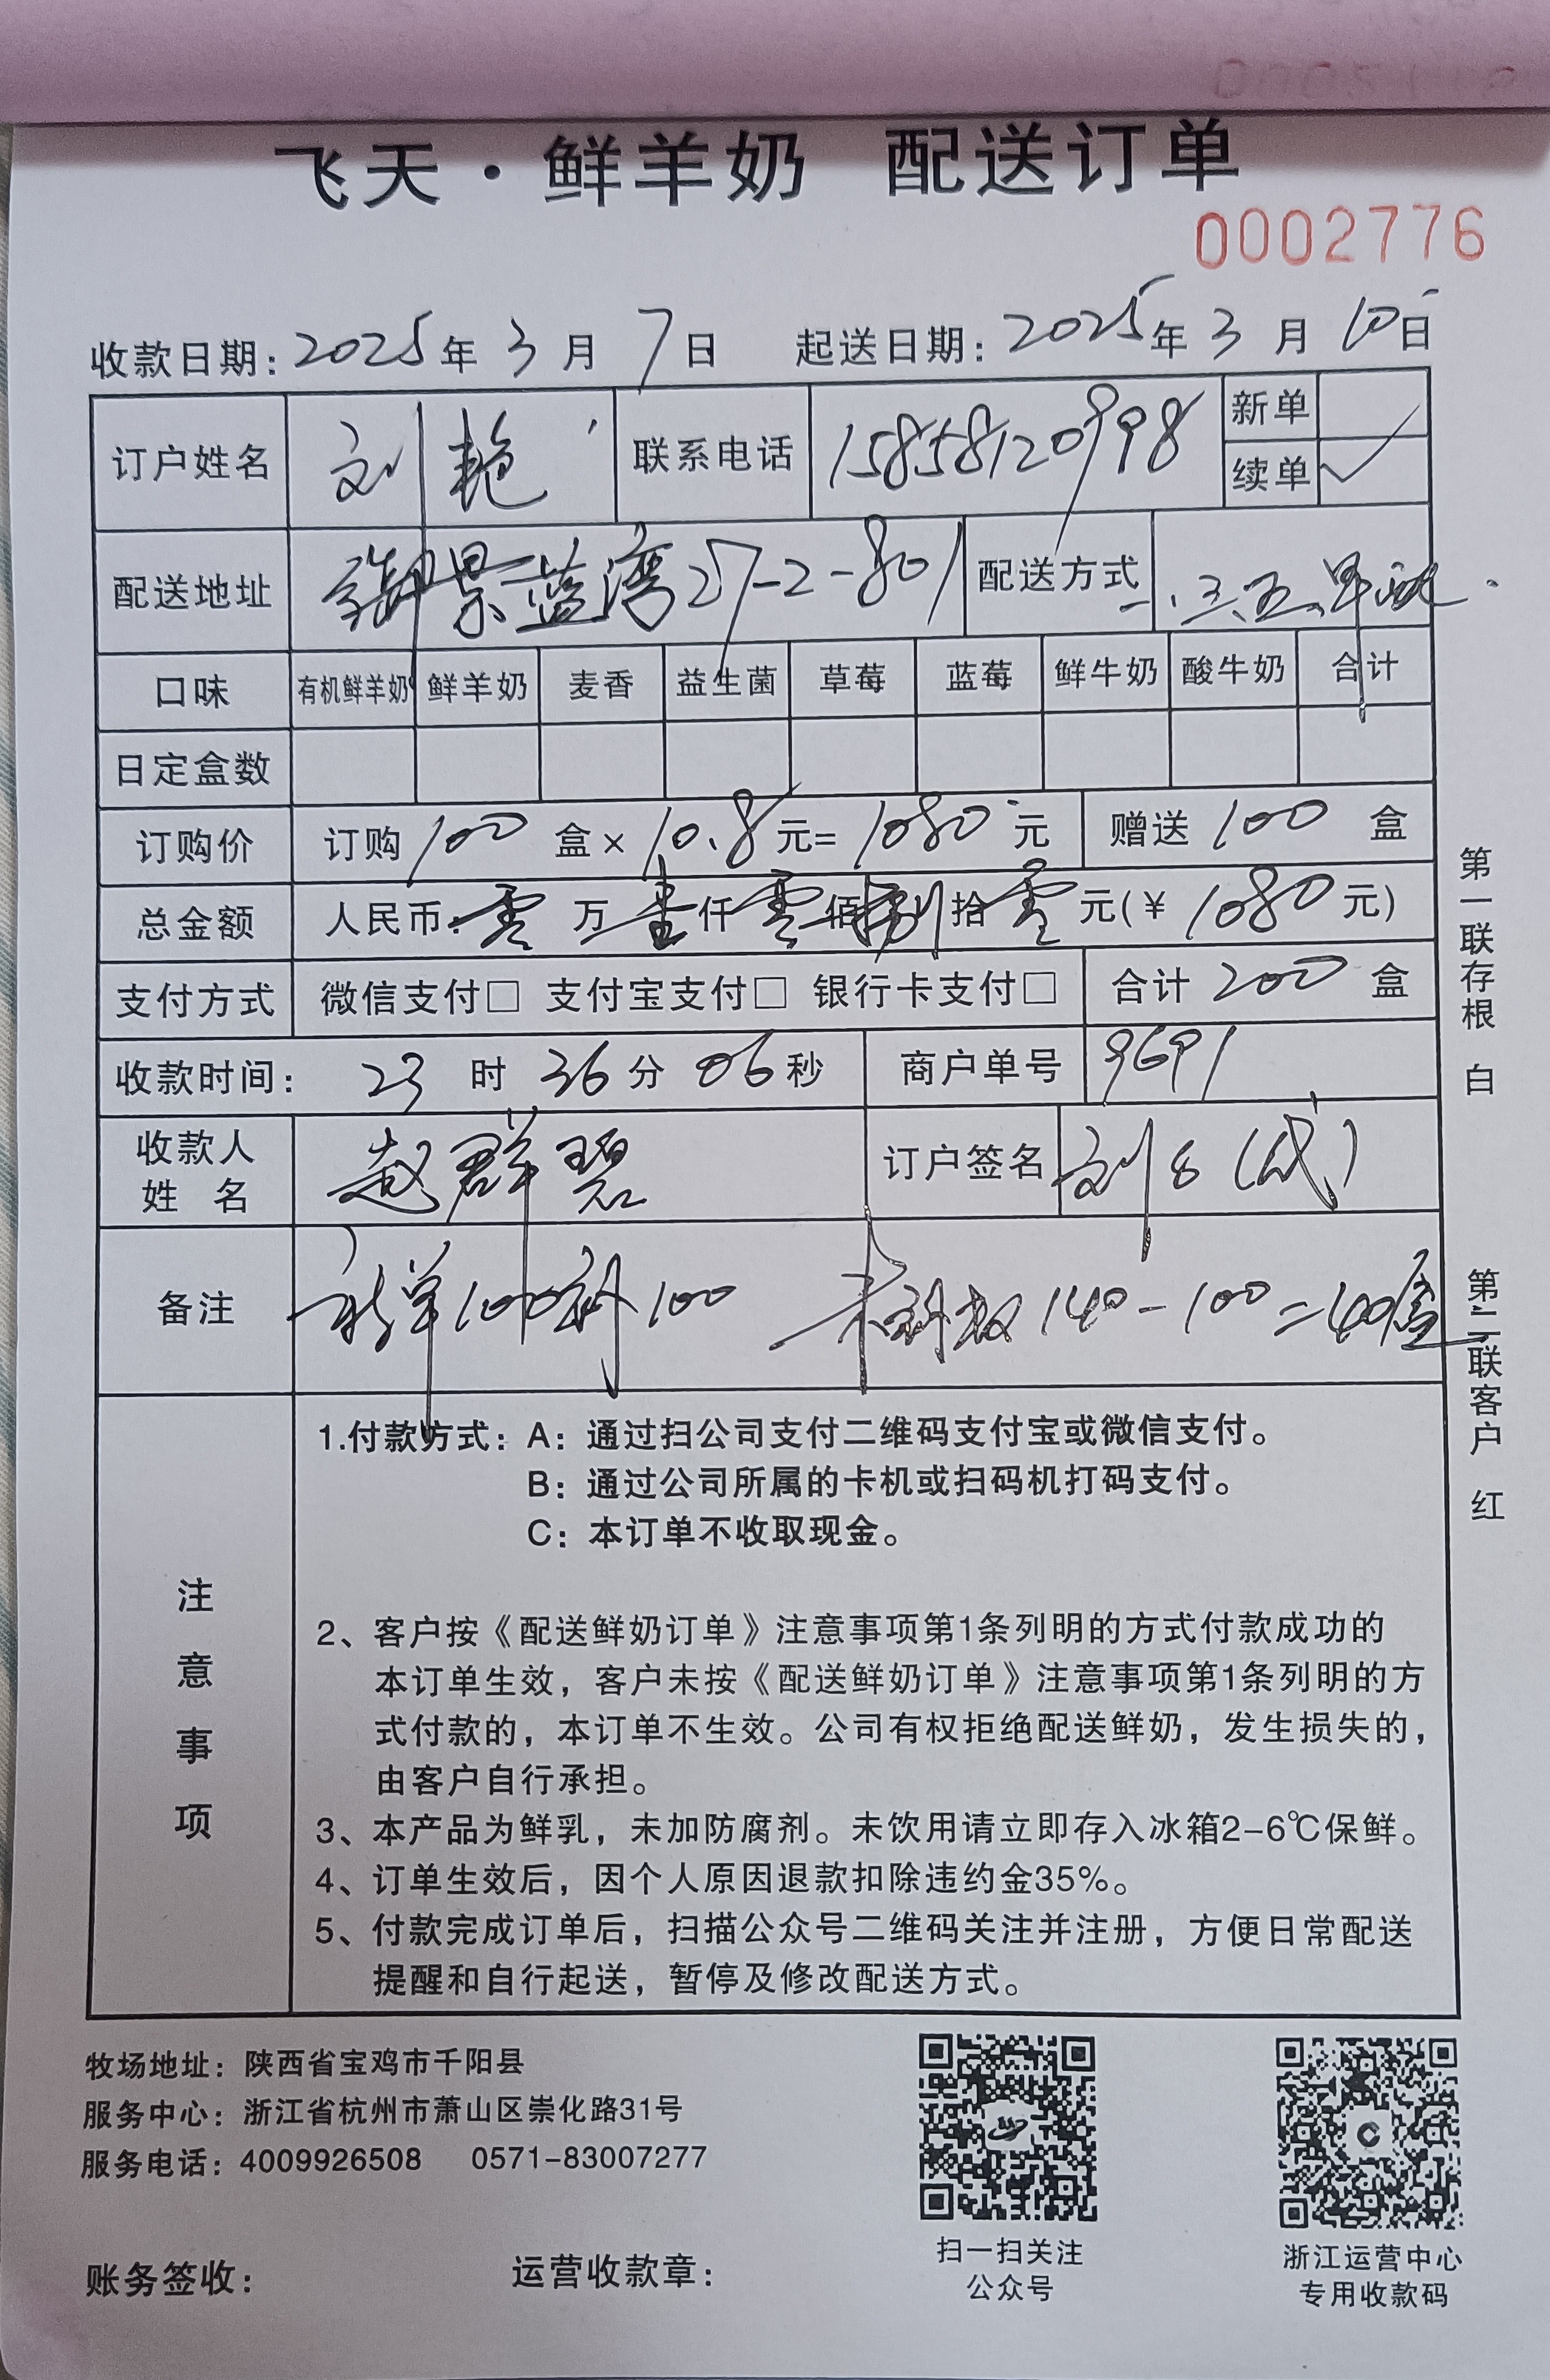 飞天·鲜羊奶 配送订单
0002776
收款日期：2025年3月7日 起送日期：2025年3月10日
订户姓名 刘艳 联系电话 15858120998 新单
续单 ✓
配送地址 御景蓝湾27-2-801 配送方式 一.三.五.早送
口味 有机鲜羊奶 鲜羊奶 麦香 益生菌 草莓 蓝莓 鲜牛奶 酸牛奶 合计
日定盒数
订购价 订购100盒×10.8元=1080元 赠送100盒
总金额 人民币：零万壹仟零佰捌拾零元(¥1080元)
支付方式 微信支付□ 支付宝支付□ 银行卡支付□ 合计200盒
收款时间：23时36分06秒 商户单号 9691
收款人姓名 赵群碧 订户签名 刘(代)
备注 新单100补100 140-100=40盒
注意事项
1.付款方式：A：通过扫公司支付二维码支付宝或微信支付。
B：通过公司所属的卡机或扫码机打码支付。
C：本订单不收取现金。
2、客户按《配送鲜奶订单》注意事项第1条列明的方式付款成功的
本订单生效，客户未按《配送鲜奶订单》注意事项第1条列明的方
式付款的，本订单不生效。公司有权拒绝配送鲜奶，发生损失的，
由客户自行承担。
3、本产品为鲜乳，未加防腐剂。未饮用请立即存入冰箱2-6℃保鲜。
4、订单生效后，因个人原因退款扣除违约金35%。
5、付款完成订单后，扫描公众号二维码关注并注册，方便日常配送
提醒和自行起送，暂停及修改配送方式。
第一联存根 白
第二联客户 红
牧场地址：陕西省宝鸡市千阳县
服务中心：浙江省杭州市萧山区崇化路31号
服务电话：4009926508 0571-83007277
扫一扫关注
公众号
浙江运营中心
专用收款码
账务签收： 运营收款章：